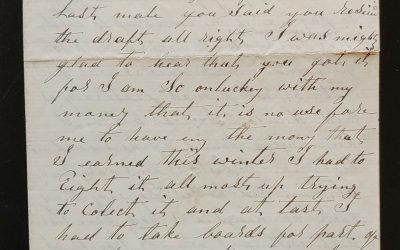 Last male you said you resiv
the draft all right I was mighty
glad to hear that you got it
for I am so onluckey with my
money that it is no use fore
me to have eny the mony that
I earned this winter I had to
Eight it all most up trying
to Colect it and at last I
had to take boards for part of